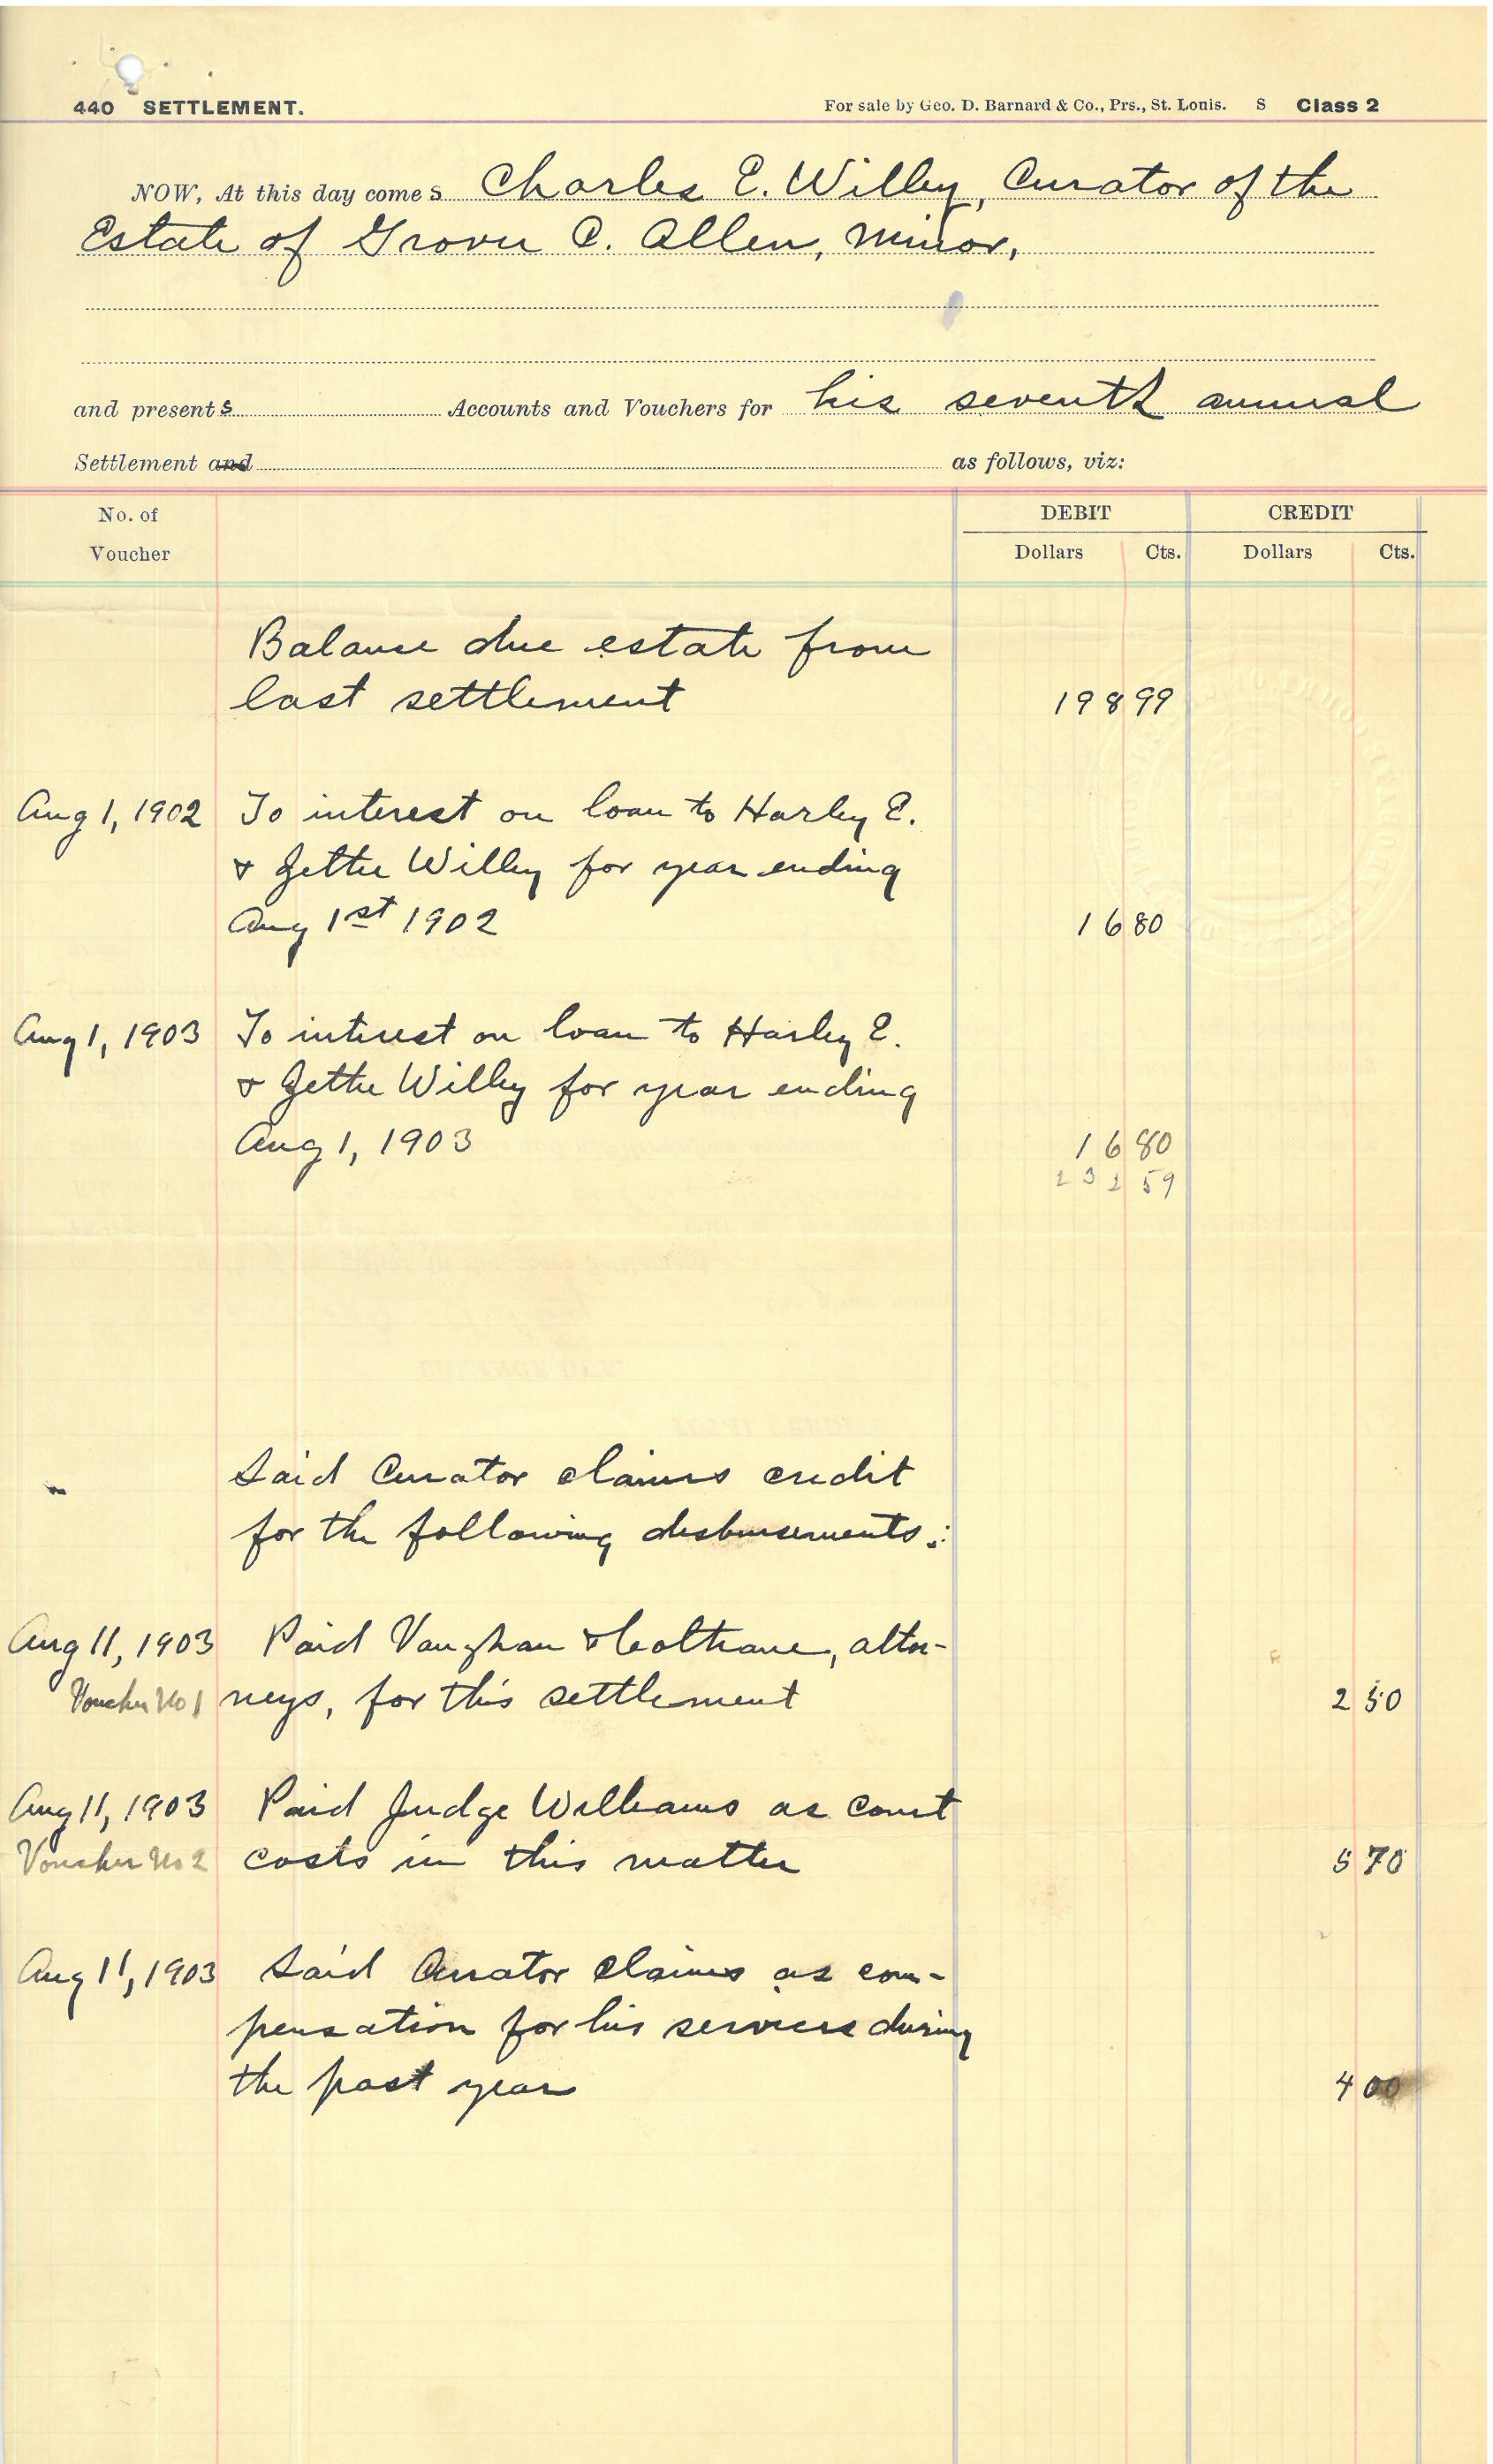 440 SETTLEMENT. For sale by Geo. D. Barnard & Co., Prs., St. Louis. S Class 2
NOW, At this day comes Charles E. Willey, Curator of the
Estate of Grover C. Allen, minor,
and presents Accounts and Vouchers for his seventh annual
Settlement and as follows, viz:
No. of DEBIT CREDIT
Voucher Dollars Cts. Dollars Cts.
Balance due estate from
last settlement 198 99
Aug 1, 1902 To interest on loan to Harley E.
& Gettie Willey for year ending
Aug 1st 1902 16 80
Aug 1, 1903 To interest on loan to Harley E.
& Gettie Willey for year ending
Aug 1, 1903 16 80
232 59
Said Curator claims credit
for the following disbursements:
Aug 11, 1903 Paid Vaughan & Coltrane, attor-
Voucher No 1 neys, for this settlement 2 50
Aug 11, 1903 Paid Judge Williams as court
Voucher No 2 costs in this matter 5 70
Aug 11, 1903 Said Curator claims as com-
pensation for his services during
the past year 4 00